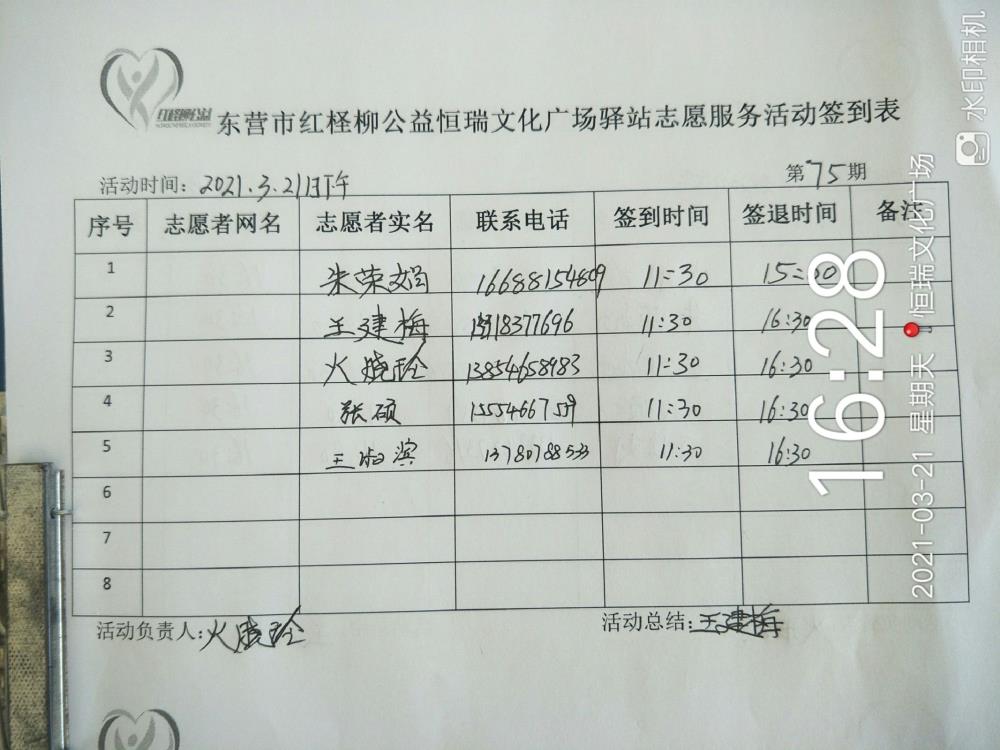 红柽柳公益
东营市红柽柳公益恒瑞文化广场驿站志愿服务活动签到表
活动时间：2021.3.21日下午 第75期
序号 志愿者网名 志愿者实名 联系电话 签到时间 签退时间 备注
1 朱荣 11:30 15:00
2 王建梅 18377696 11:30 16:30
3 火晓玲 13854658983 11:30 16:30
4 张硕 11:30 16:30
5 王 滨 13780788533 11:30 16:30
6
7
8
活动负责人：火晓玲 活动总结：王建梅
16:28
2021-03-21 星期天 恒瑞文化广场
水印相机